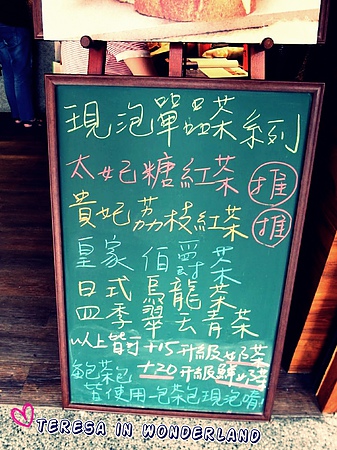 現泡單品茶系列
太妃糖紅茶 推
貴妃荔枝紅茶 推
皇家伯爵茶
日式烏龍茶
四季翠玉青茶
以上皆可+15升級奶茶
+20升級鮮奶茶
茶包
皆使用一包茶包現泡唷
TERESA IN WONDERLAND